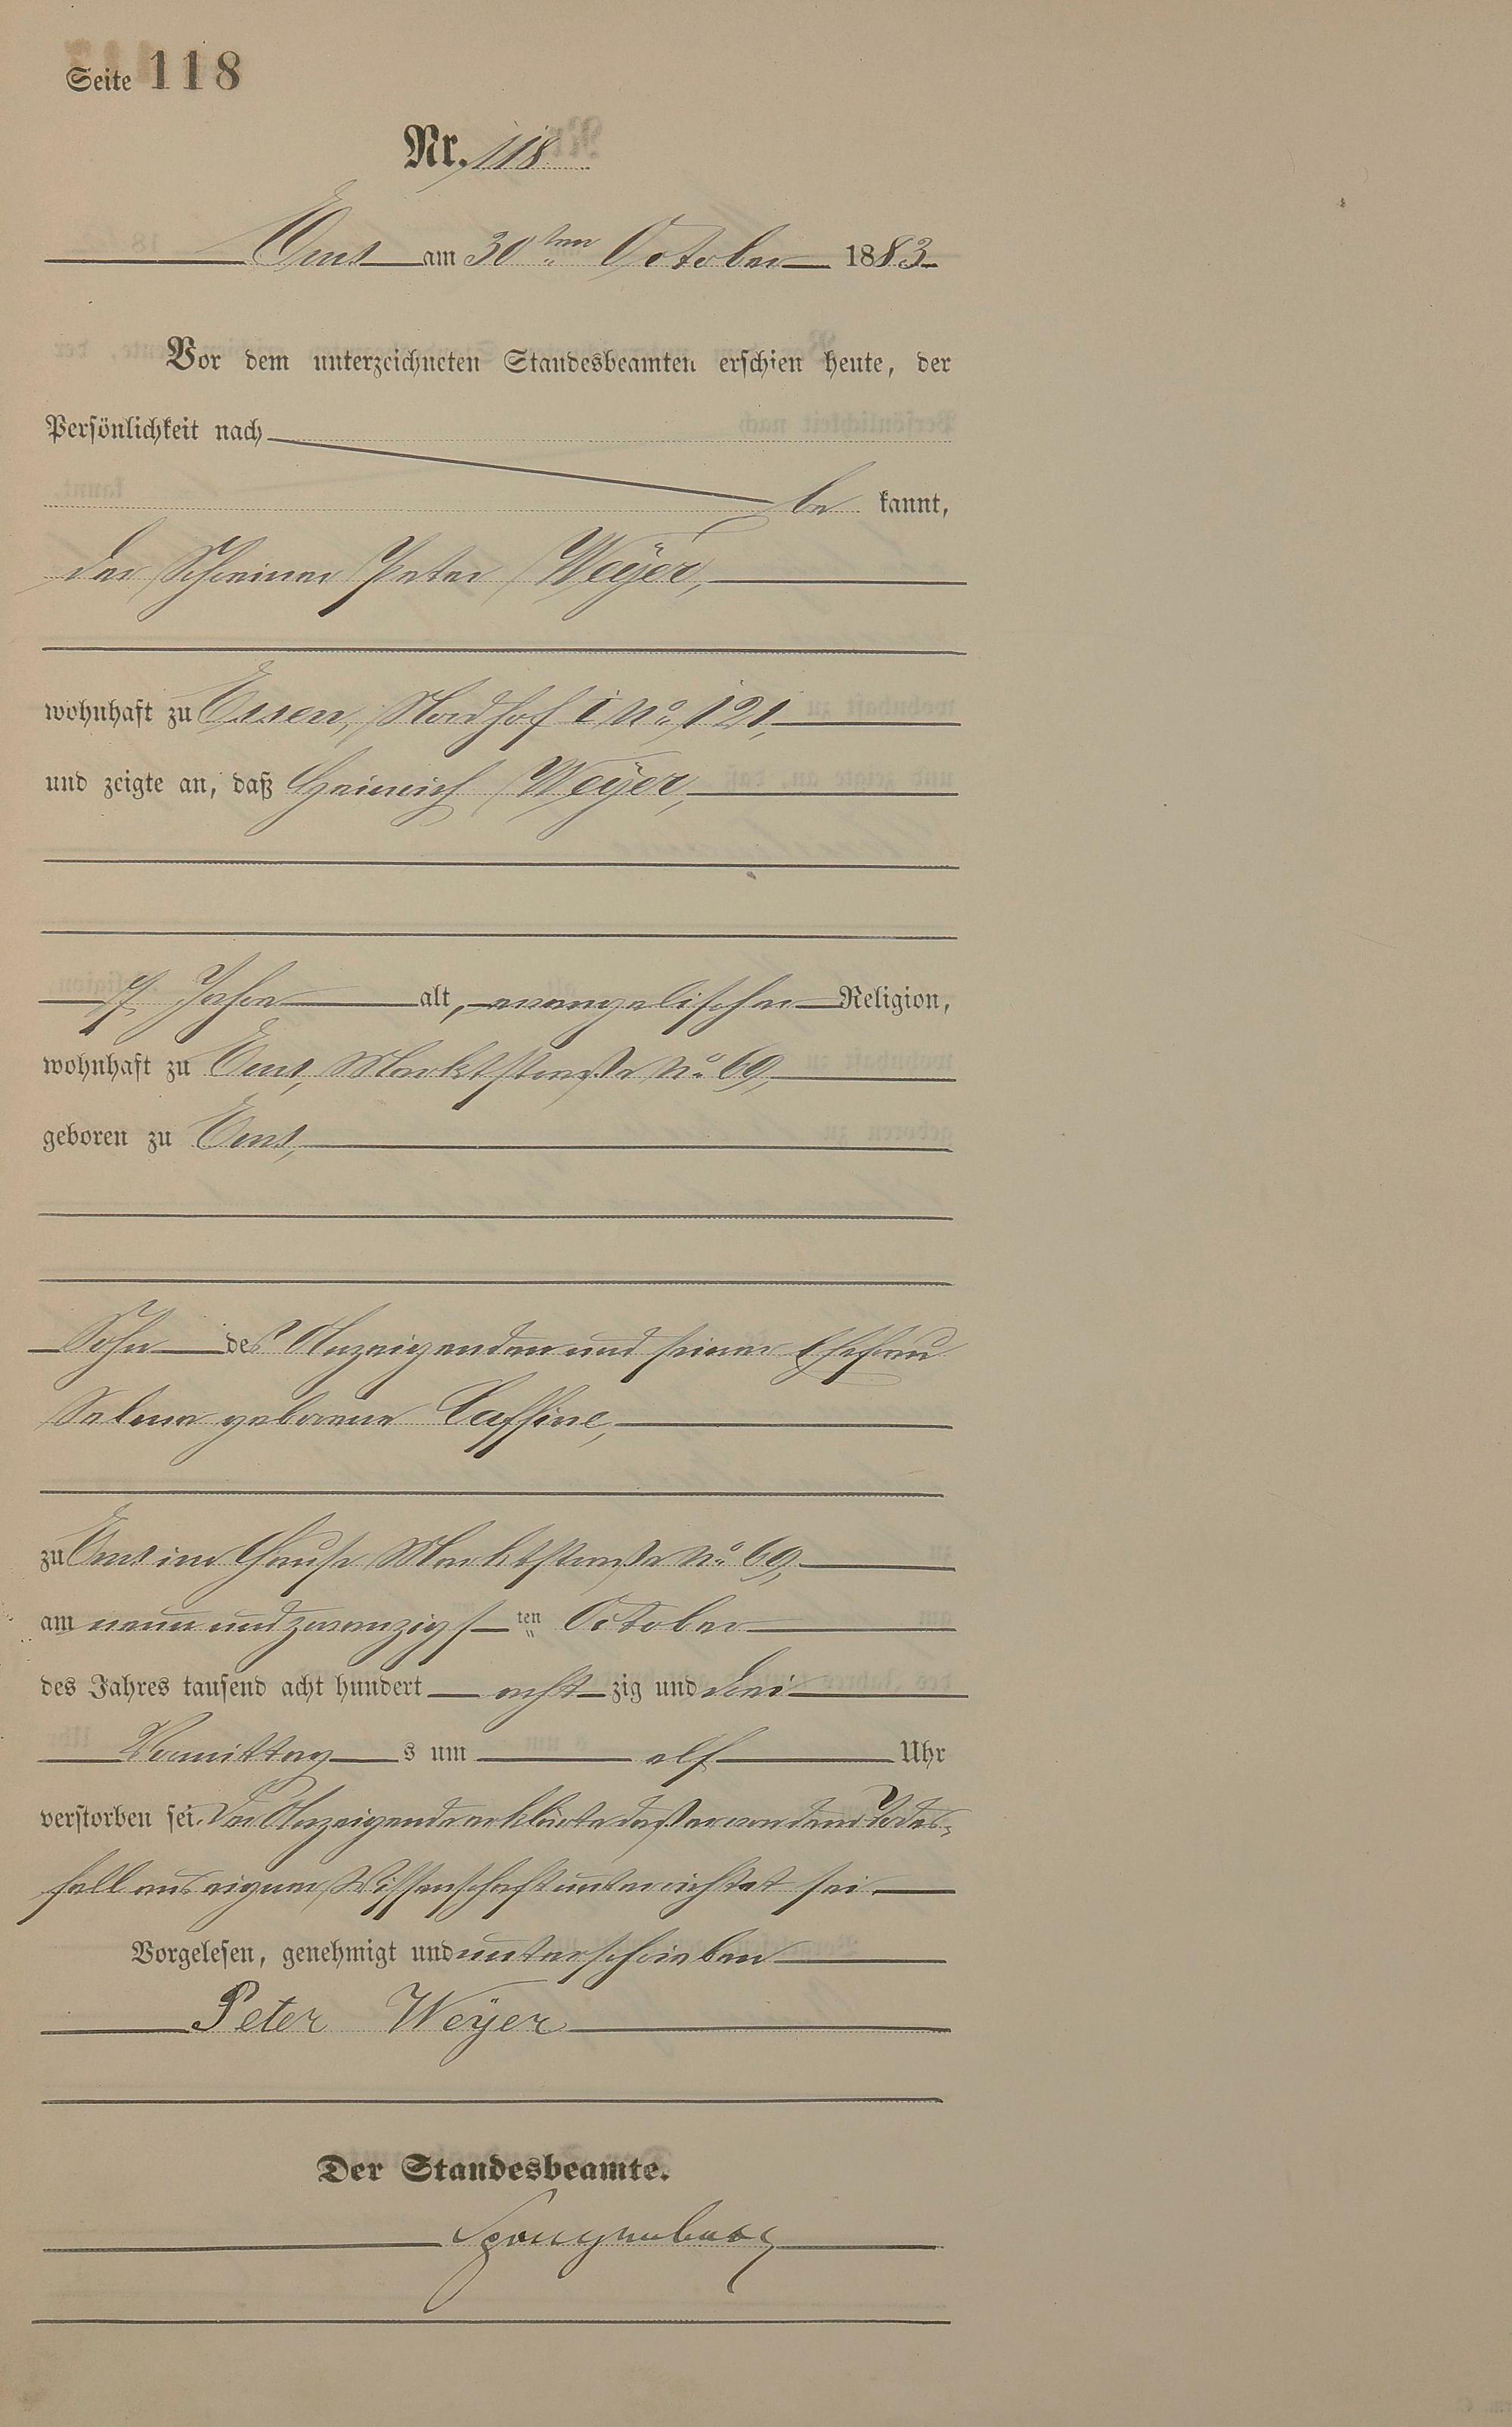 Seite 118
Nr. 118
Ems am 30ten October 1883
Vor dem unterzeichneten Standesbeamten erschien heute, der
Persönlichkeit nach
be kannt,
der Schreiner Peter Weÿer,
wohnhaft zu Essen, Nordhof I No 121,
und zeigte an, daß Heinrich Weÿer,
Jahre alt, evangelischer Religion,
wohnhaft zu Ems, Marktstraße No 69,
geboren zu Ems,
Sohn des Anzeigenden und seiner Ehefrau
geborene Caffine,
zu Ems im Hause Marktstraße No 69,
am neun und zwanzigsten October
des Jahres tausend acht hundert acht zig und drei
Vormittag s um elf Uhr
verstorben sei. Der Anzeigende erklärte daß er von dem Todes-
fall aus eigener Wissenschaft unterrichtet sei.
Vorgelesen, genehmigt und unterschrieben
Peter Weÿer
Der Standesbeamte.